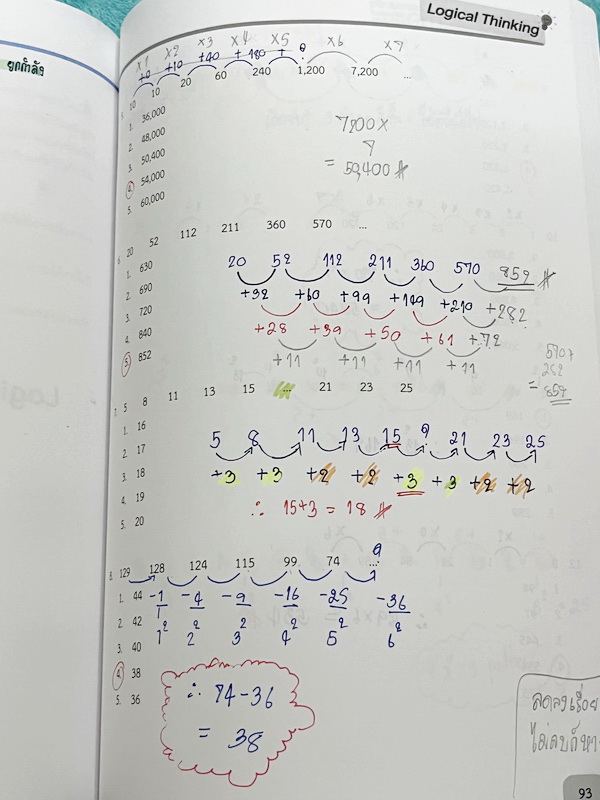 Logical Thinking
ยกกำลัง
×1 ×2 ×3 ×4 ×5 ×6 ×7
+0 +10 +40 +180 + 9
10 10 20 60 240 1,200 7,200 ...
1. 36,000
2. 48,000
3. 50,400
4. 54,000
5. 60,000
7,200 ×
7
= 50,400
6. 20 52 112 211 360 570 ...
1. 630
2. 690
3. 720
4. 840
5. 852
20 52 112 211 360 570 852
+32 +60 +99 +149 +210 +282
+28 +39 +50 +61 +72
+11 +11 +11 +11
570+
282
= 852
7. 5 8 11 13 15 ... 21 23 25
1. 16
2. 17
3. 18
4. 19
5. 20
5 8 11 13 15 ? 21 23 25
+3 +3 +2 +2 +3 +3 +2 +2
∴ 15+3 = 18
8. 129 128 124 115 99 74 ...
?
1. 44
2. 42
3. 40
4. 38
5. 36
-1 -4 -9 -16 -25 -36
1² 2² 3² 4² 5² 6²
∴ 74-36
= 38
ลดลงเรื่อย
93